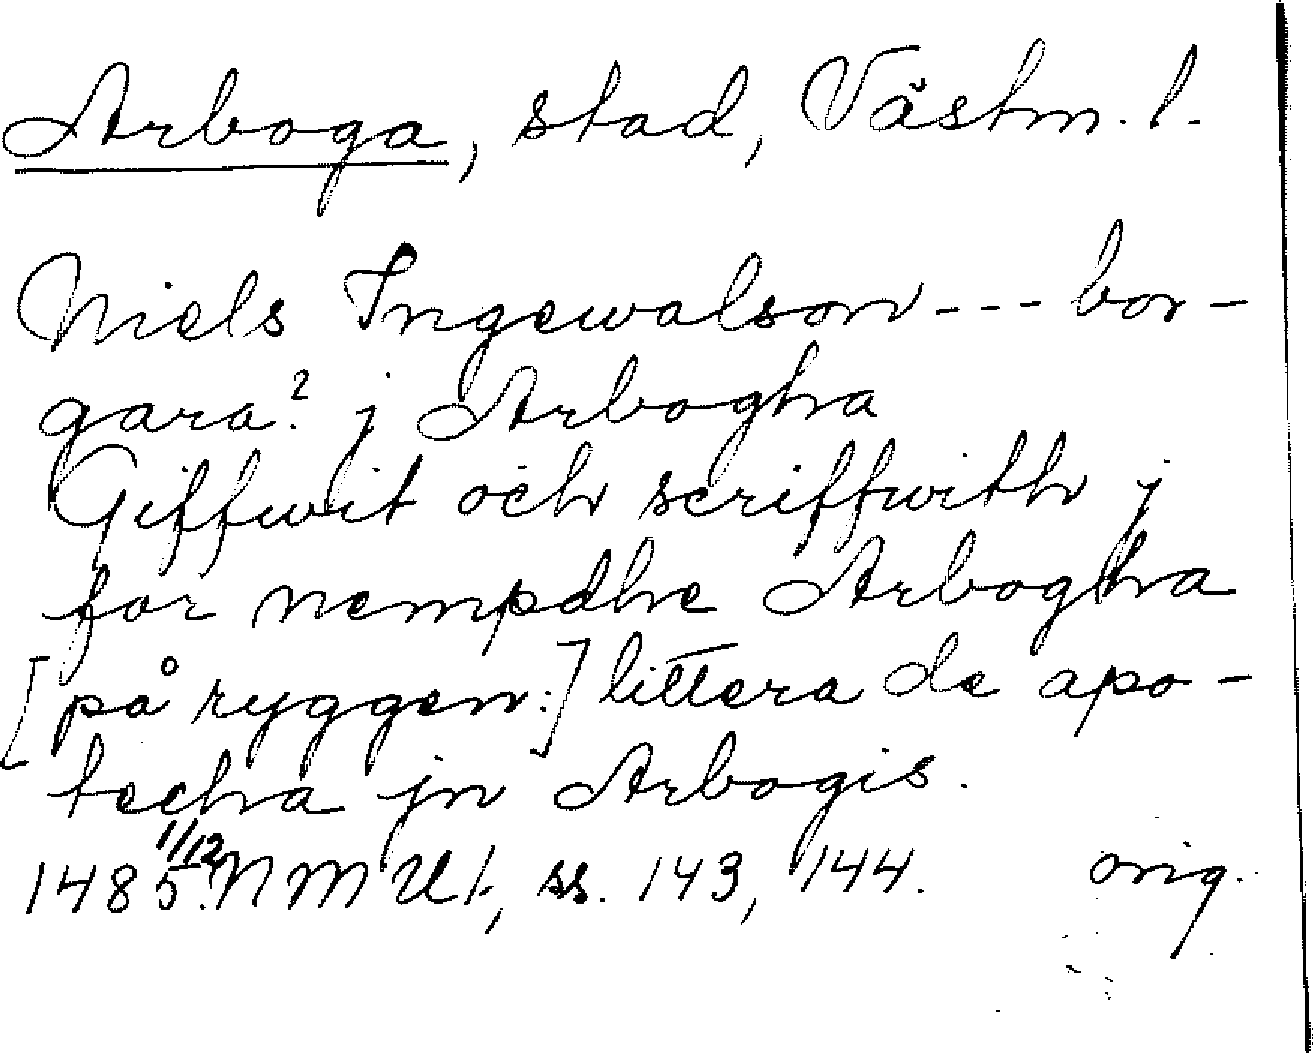 Arboga, stad, Västm. l.
Niels Ingewalson --- bor-
gara? j Arbogha
Giffwit och scriffwith j
for nempdhe Arbogha
[på ryggen:] littera de apo-
techa jn Arbogis.
1485 1/12. NM U1, ss. 143, 144. orig.